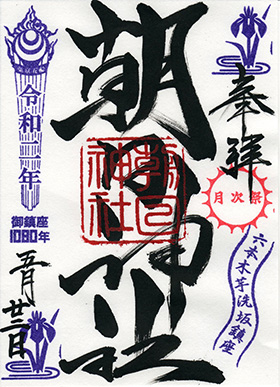 奉拝
月次祭
六本木芋洗坂鎮座
朝日神社
朝日神社
令和二年
御鎮座
1080年
五月廿二日